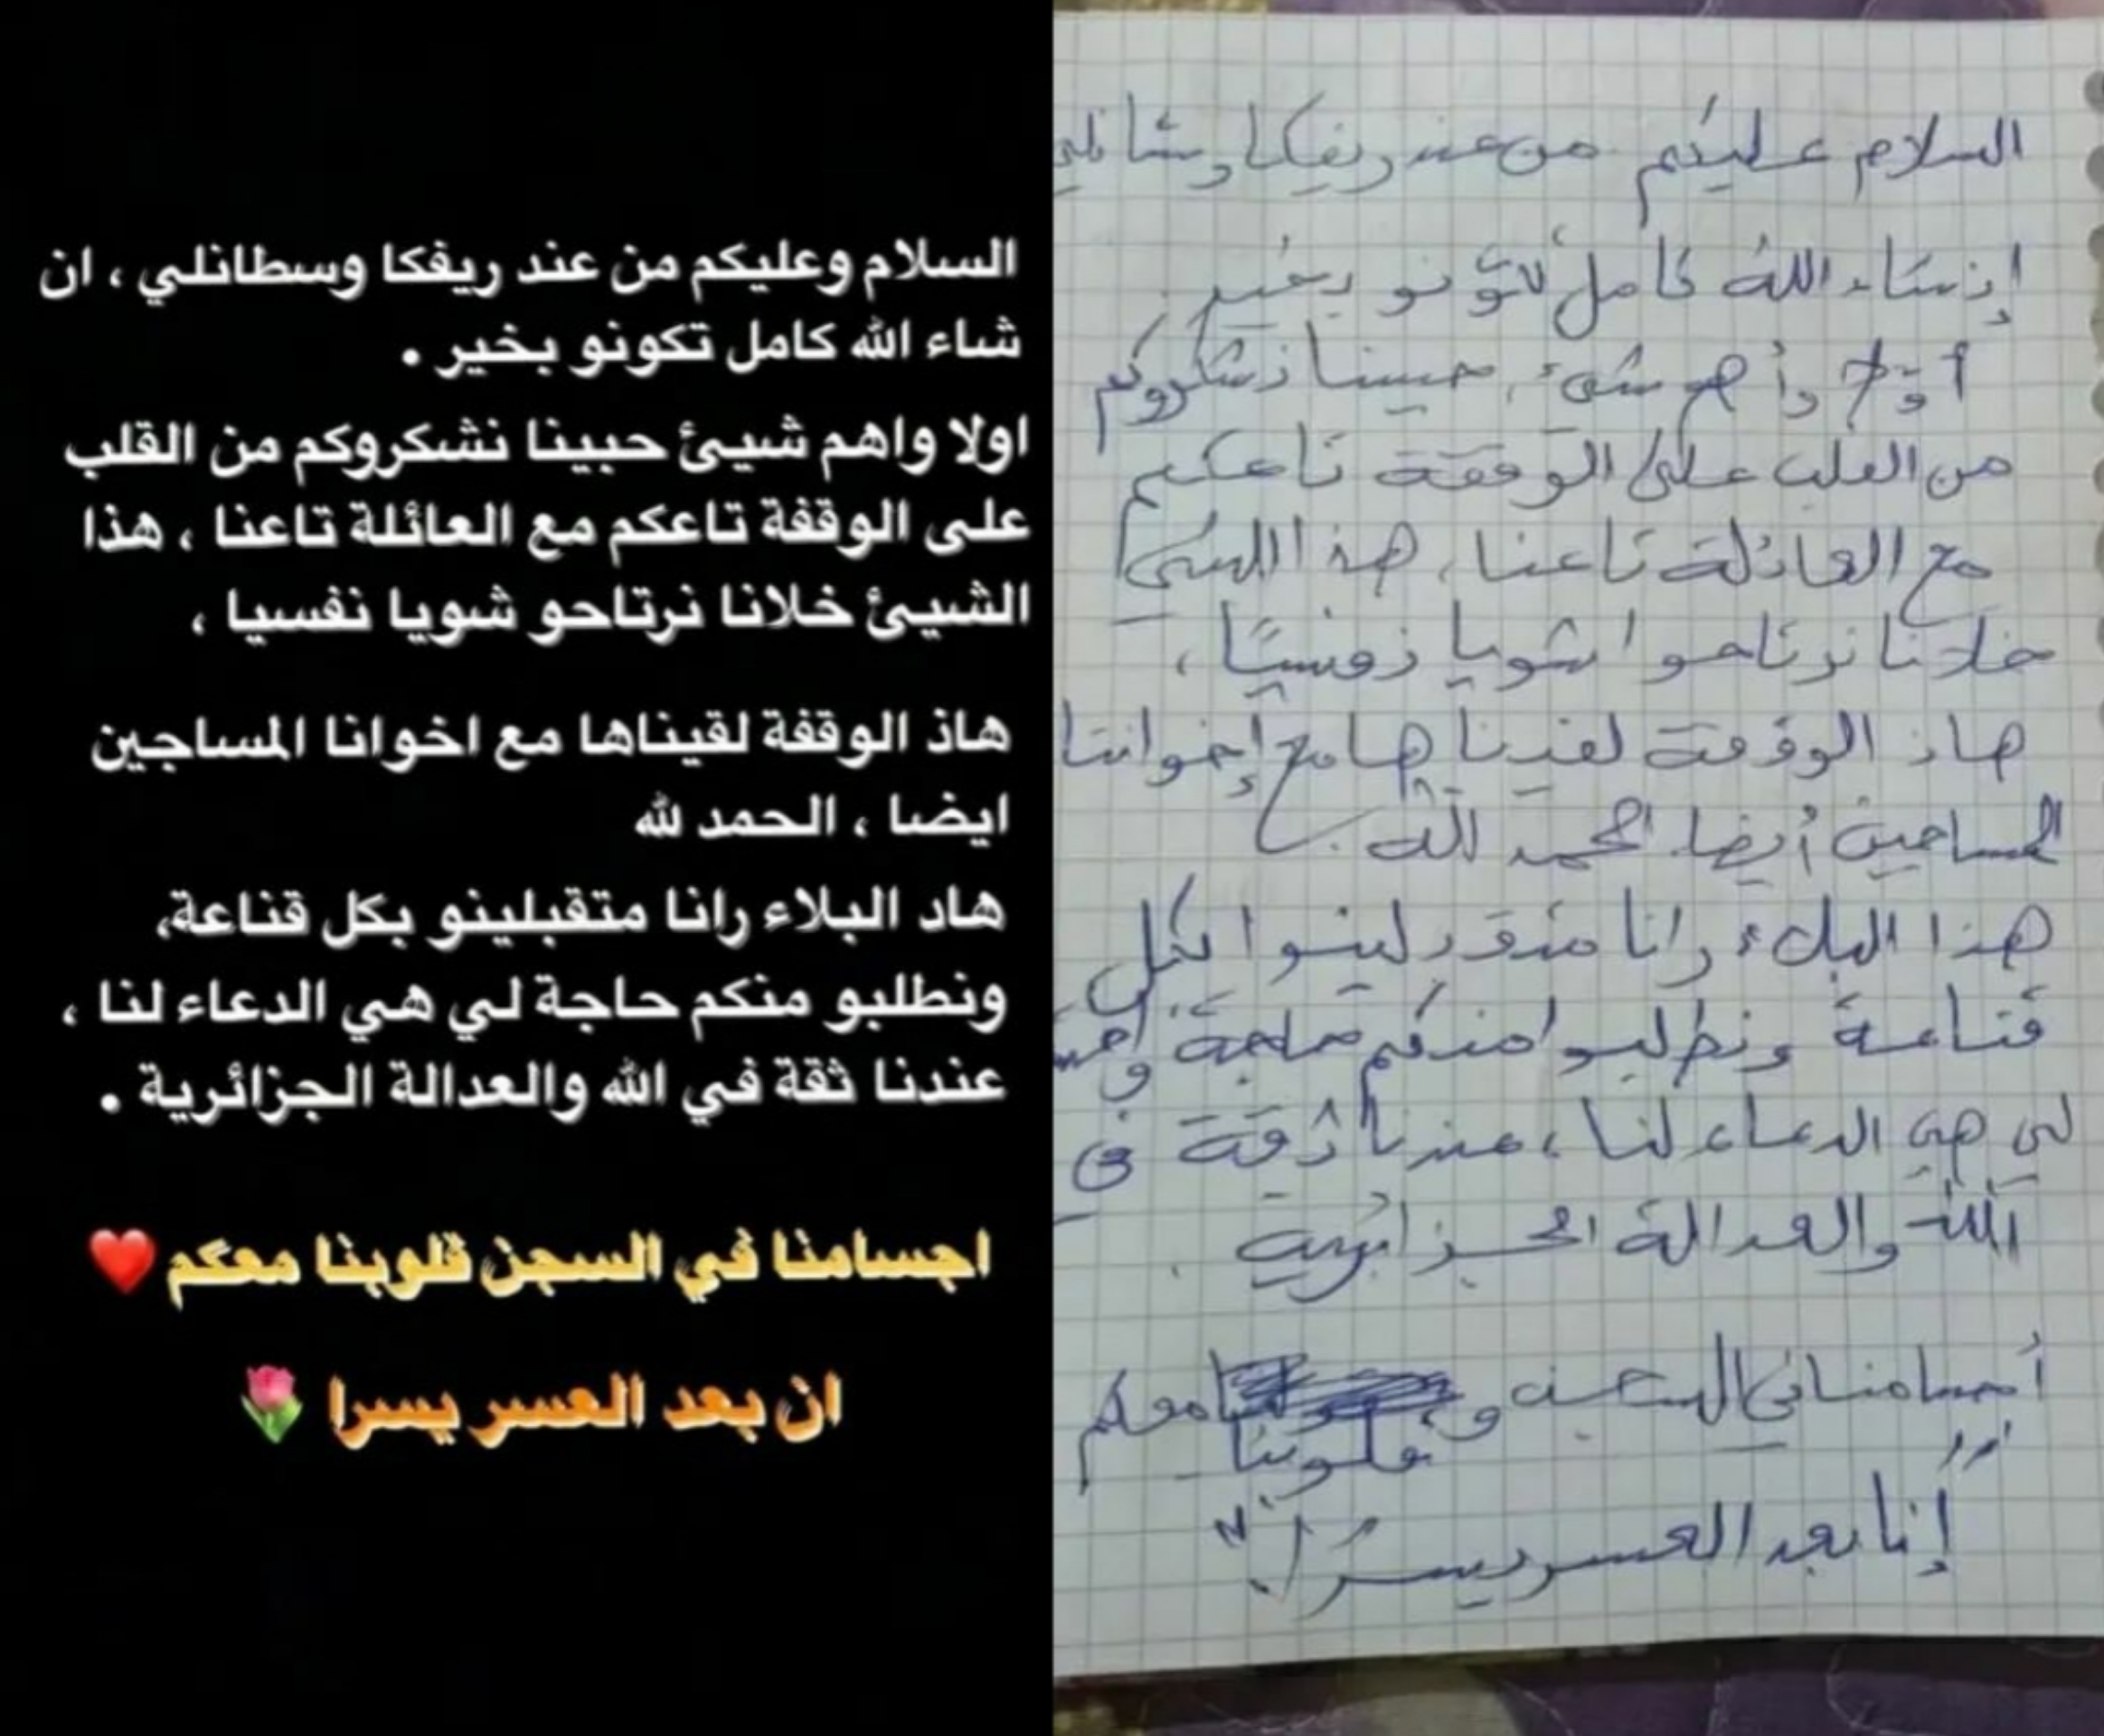 السلام وعليكم من عند ريفكا وسطانلي ، ان
شاء الله كامل تكونو بخير .
اولا واهم شيئ حبينا نشكروكم من القلب
على الوقفة تاعكم مع العائلة تاعنا ، هذا
الشيئ خلانا نرتاحو شويا نفسيا ،
هاذ الوقفة لقيناها مع اخوانا المساجين
ايضا ، الحمد لله
هاد البلاء رانا متقبلينو بكل قناعة،
ونطلبو منكم حاجة لي هي الدعاء لنا ،
عندنا ثقة في الله والعدالة الجزائرية .
اجسامنا في السجن قلوبنا معكم ❤️
ان بعد العسر يسرا 🌷
السلام عليكم من عند ريفكا وسطانلي
إنشاء الله كامل تكونو بخير.
أولا وأهم شيء، حبينا نشكروكم
من القلب على الوقفة تاعكم
مع العائلة تاعنا، هذا الشيء
خلانا نرتاحوا شويا نفسيًا،
هاذ الوقفة لقيناها مع إخواننا
المساجين أيضا. الحمد الله.
هذا البلاء رانا متقبلينوا بكل
قناعة ونطلبوا منكم حاجة
لي هي الدعاء لنا، عندنا ثقة في
الله والعدالة الجزائرية.
أجسامنا في السجن و قلوبنا معكم
"إنا بعد العسر يسرًا"